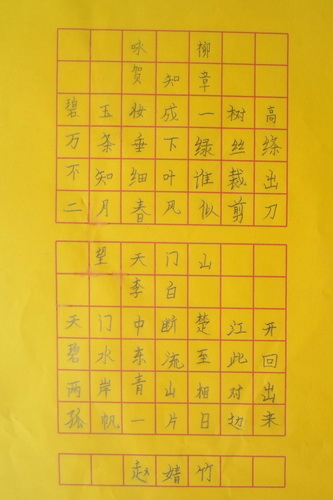 咏柳
贺知章
碧玉妆成一树高
万条垂下绿丝绦
不知细叶谁裁出
二月春风似剪刀
望天门山
李白
天门中断楚江开
碧水东流至此回
两岸青山相对出
孤帆一片日边来
赵婧竹